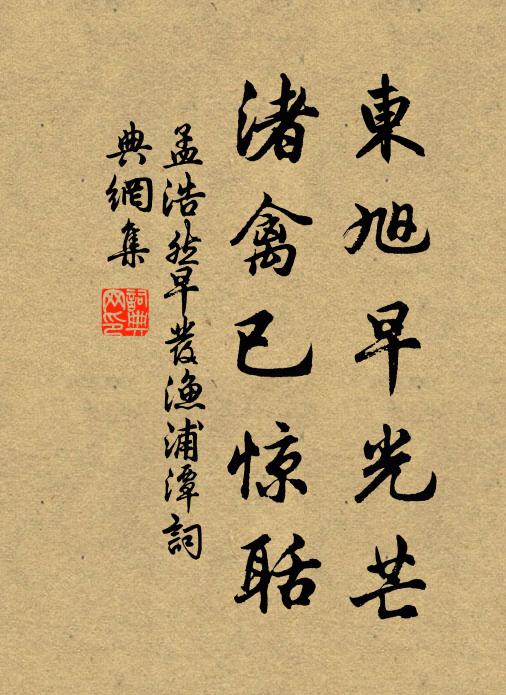 東旭早光芒
渚禽已惊聒
孟浩然早發漁浦潭詞
典網集
詞典
网印